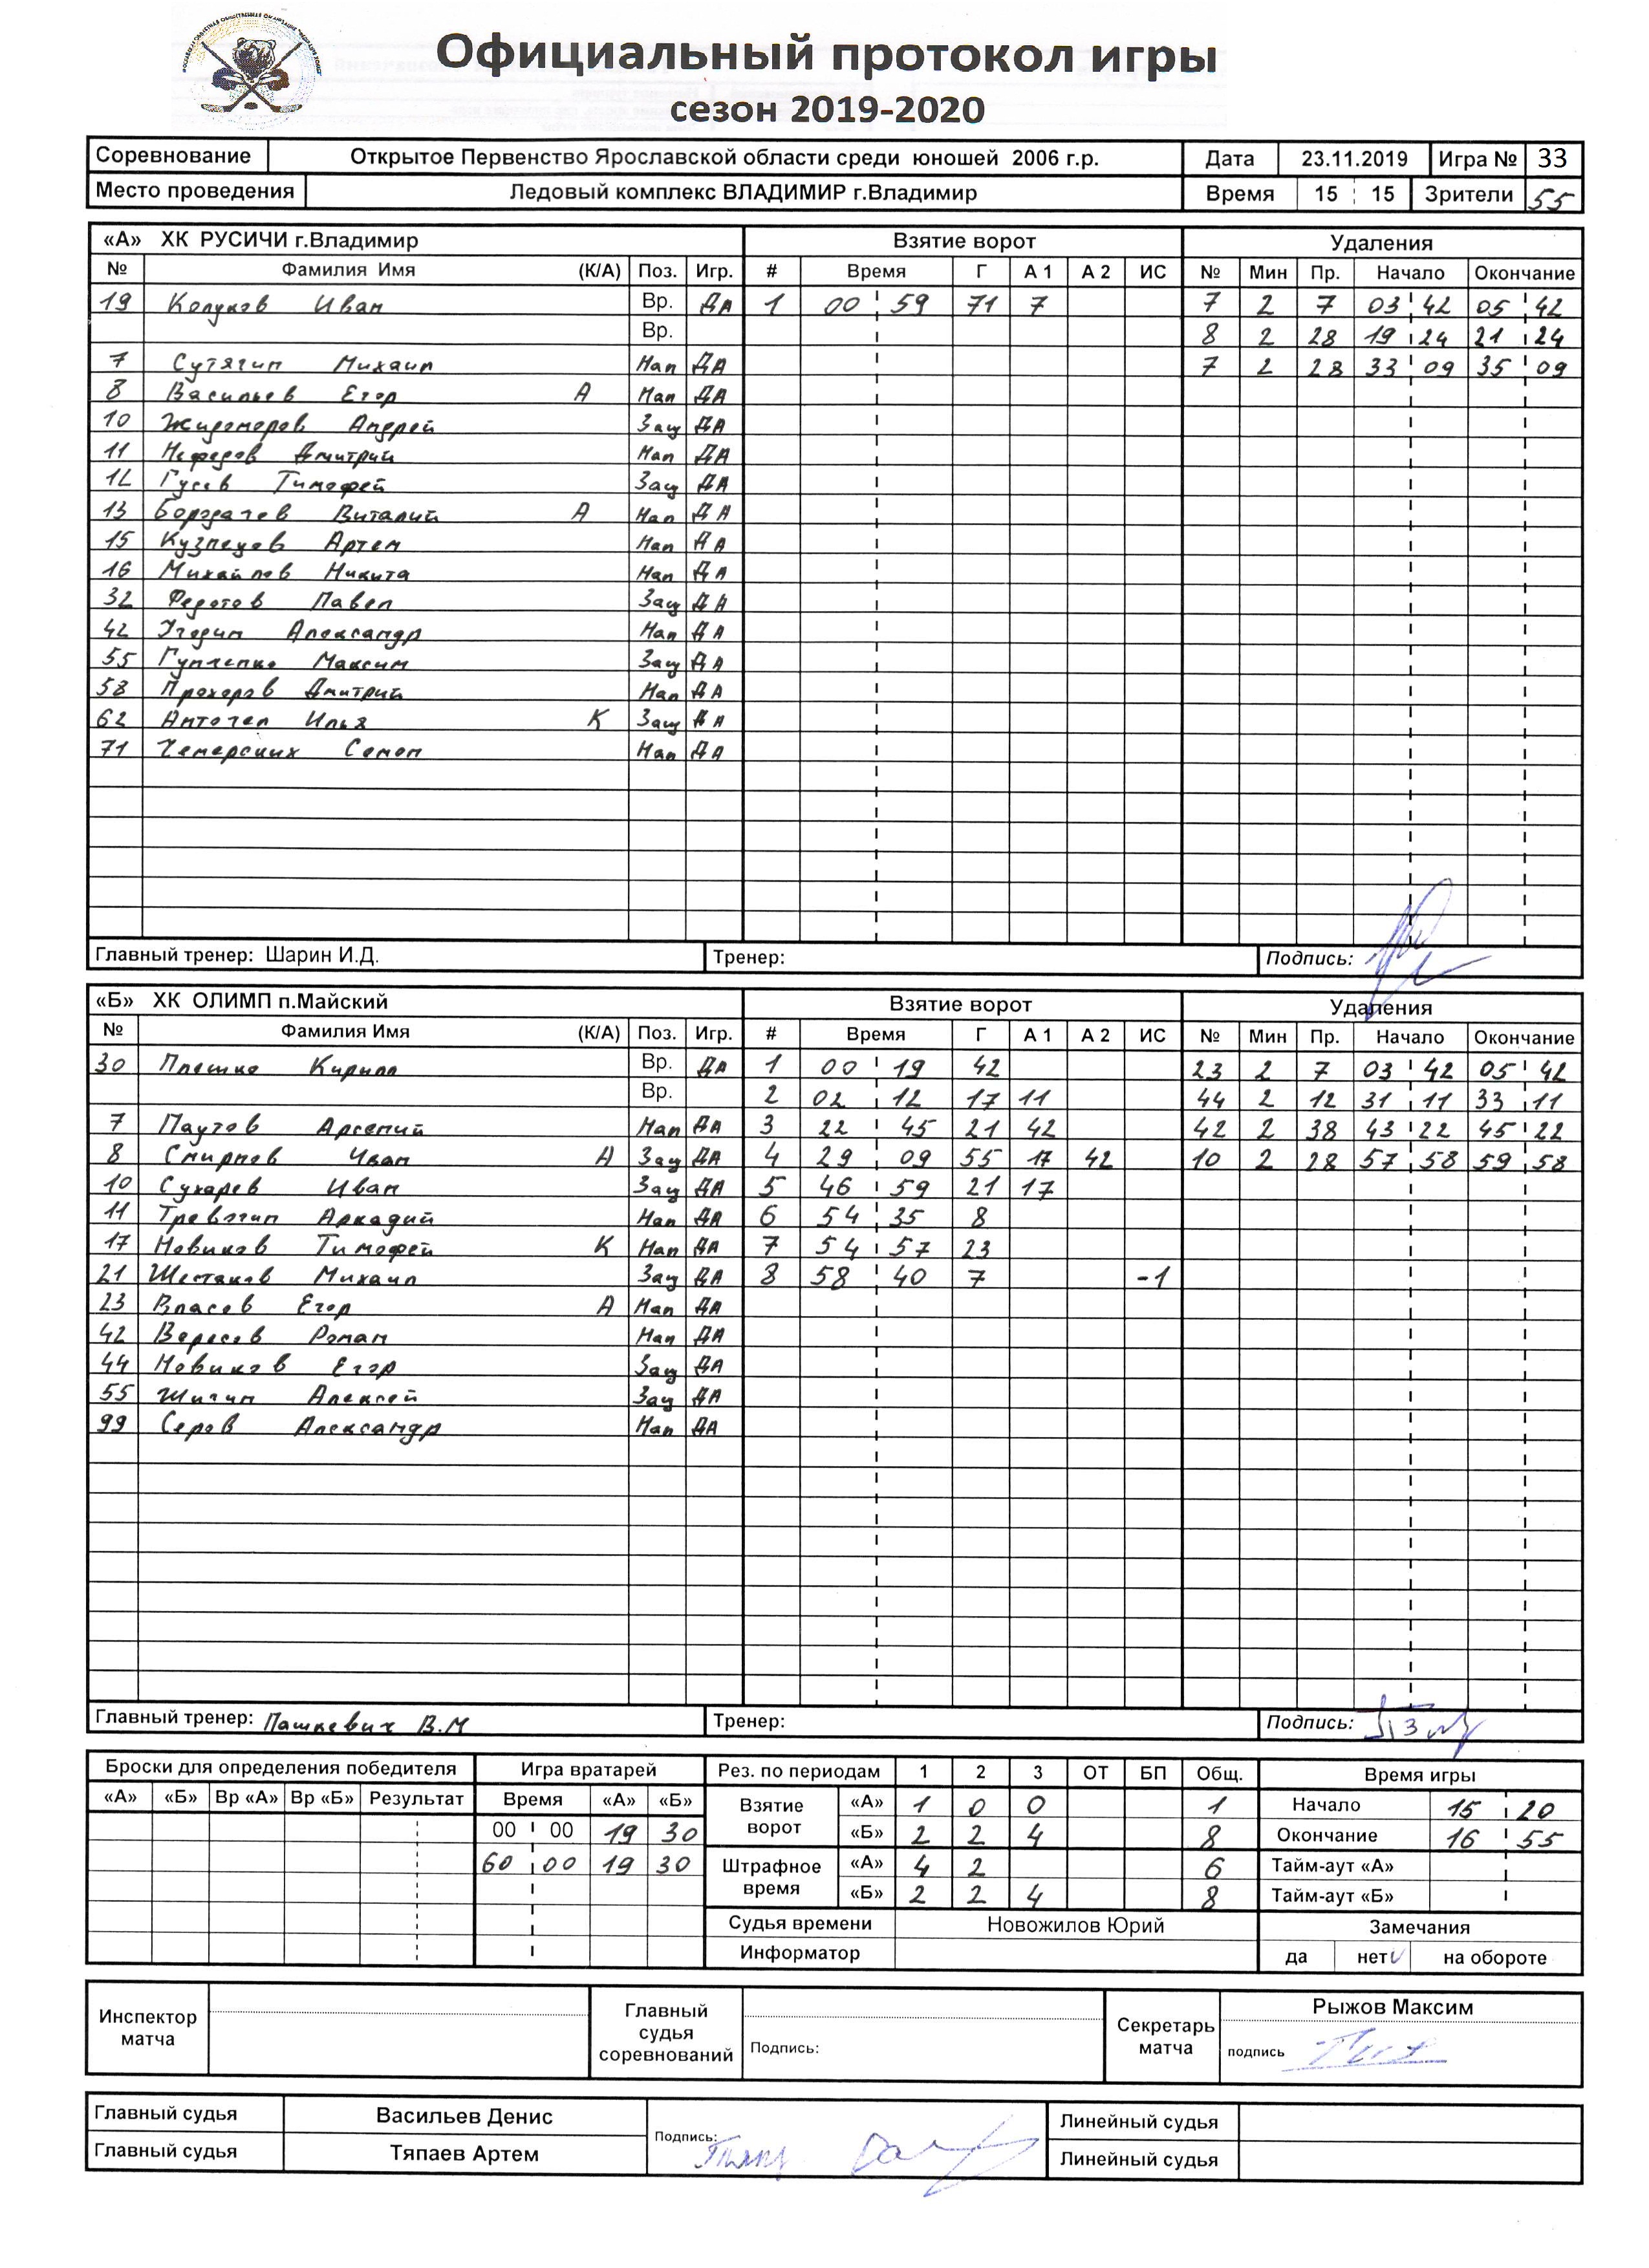 Официальный протокол игры
сезон 2019-2020
Соревнование Открытое Первенство Ярославской области среди юношей 2006 г.р. Дата 23.11.2019 Игра № 33
Место проведения Ледовый комплекс ВЛАДИМИР г.Владимир Время 15 15 Зрители 55
«А» ХК РУСИЧИ г.Владимир Взятие ворот Удаления
№ Фамилия Имя (К/А) Поз. Игр. # Время Г А 1 А 2 ИС № Мин Пр. Начало Окончание
19 Колуков Иван Вр. ДА 1 00 59 71 7 7 2 7 03 42 05 42
Вр. 8 2 28 19 24 21 24
7 Сутягин Михаил Нап ДА 7 2 28 33 09 35 09
8 Васильев Егор А Нап ДА
10 Жидоморов Андрей Защ ДА
11 Нефедов Дмитрий Нап ДА
12 Гусев Тимофей Защ ДА
13 Бородачев Виталий А Нап ДА
15 Кузнецов Артем Нап ДА
16 Михайлов Никита Нап ДА
32 Федотов Павел Защ ДА
42 Угодин Александр Нап ДА
55 Максим Защ ДА
58 Прохоров Дмитрий Нап ДА
62 Анточел Илья К Защ ДА
71 Чемерских Семен Нап ДА
Главный тренер: Шарин И.Д. Тренер: Подпись:
«Б» ХК ОЛИМП п.Майский Взятие ворот Удаления
№ Фамилия Имя (К/А) Поз. Игр. # Время Г А 1 А 2 ИС № Мин Пр. Начало Окончание
30 Плешко Кирилл Вр. ДА 1 00 19 42 23 2 7 03 42 05 42
Вр. 2 02 12 17 11 44 2 12 31 11 33 11
7 Паутов Арсений Нап ДА 3 22 45 21 42 42 2 38 43 22 45 22
8 Смирнов Иван А Защ ДА 4 29 09 55 17 42 10 2 28 57 58 59 58
10 Сухарев Иван Защ ДА 5 46 59 21 17
11 Тревогин Аркадий Нап ДА 6 54 35 8
17 Новиков Тимофей К Нап ДА 7 54 57 23
21 Шестаков Михаил Защ ДА 8 58 40 7 -1
23 Власов Егор А Нап ДА
42 Вересов Роман Нап ДА
44 Новиков Егор Защ ДА
55 Шигин Алексей Защ ДА
99 Серов Александр Нап ДА
Главный тренер: Пашкевич В.М Тренер: Подпись:
Броски для определения победителя Игра вратарей Рез. по периодам 1 2 3 ОТ БП Общ. Время игры
«А» «Б» Вр «А» Вр «Б» Результат Время «А» «Б» Взятие ворот «А» 1 0 0 1 Начало 15 20
00 00 19 30 «Б» 2 2 4 8 Окончание 16 55
60 00 19 30 Штрафное время «А» 4 2 6 Тайм-аут «А»
«Б» 2 2 4 8 Тайм-аут «Б»
Судья времени Новожилов Юрий Замечания
Информатор да нет V на обороте
Инспектор матча Главный судья соревнований Подпись: Секретарь матча Рыжов Максим
подпись
Главный судья Васильев Денис Подпись: Линейный судья
Главный судья Тяпаев Артем Линейный судья